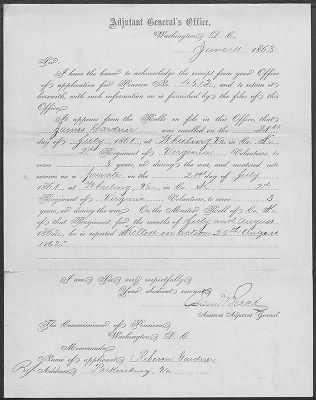 Adjutant General's Office,
Washington D. C.
June 11 1863
Sir,
I have the honor to acknowledge the receipt from your Office
of application for Pension No. 4513, and to return it
herewith, with such information as is furnished by the files of this
Office.
It appears from the Rolls on file in this Office, that
James Gardner was enrolled on the 21st
day of July 1861 at Wheeling Va in Co.
2nd Regiment of Virginia Volunteers, to
serve 3 years, or during the war, and mustered into
service as a private on the 21st day of July
1861, at Wheeling, Va, in Co. 2nd
Regiment of Virginia Volunteers, to serve 3
years, or during the war. On the Muster Roll of Co.
of that Regiment, for the months of July and August
1862, he is reported Killed in action 25th August
1862.
I am Sir very respectfully
Your obedient servant,
Assistant Adjutant General
The Commissioner of Pensions
Washington D. C.
Memoranda
Name of applicant Rebecca Gardner
Address Parkersburg, Va